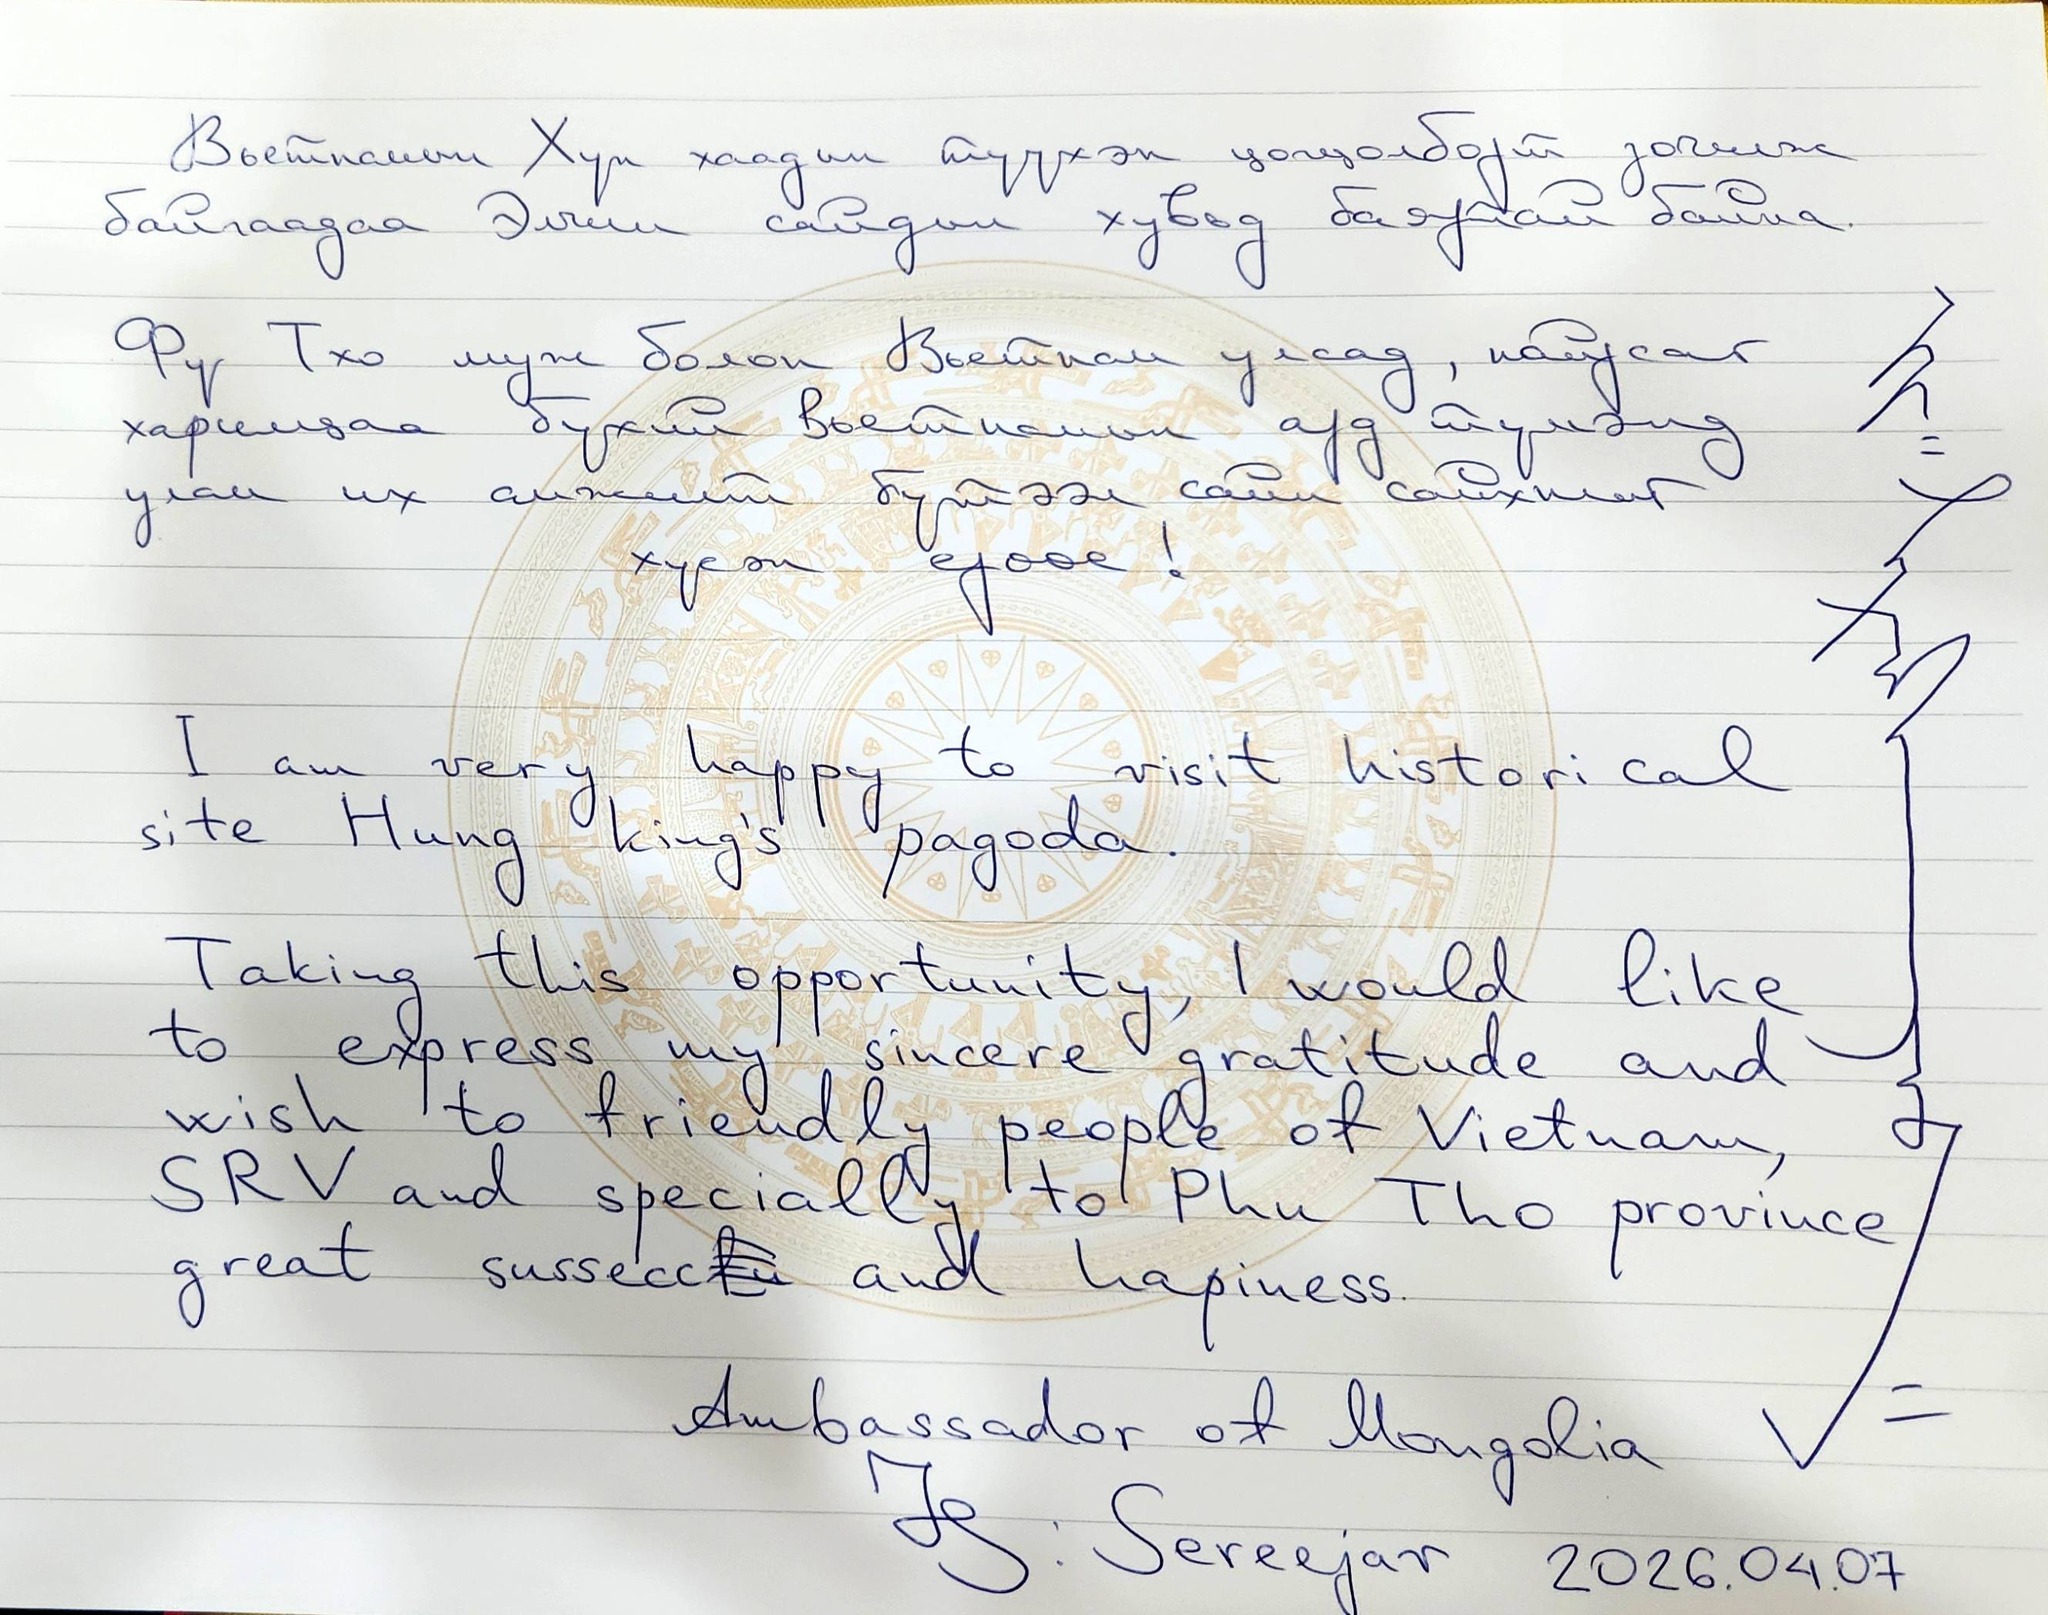 Вьетнамын Хүн хаадын түүхэн цогцолборт зочилж
байгаадаа Элчин сайдын хувьд баяртай байна.
Фу Тхо муж болон Вьетнам улсад, найрсаг
харилцаа бүхий Вьетнамын ард түмэнд
улам их амжилт бүтээл сайн сайхныг
хүсэн ерөөе!
I am very happy to visit historical
site Hung king's pagoda.
Taking this opportunity, I would like
to express my sincere gratitude and
wish to friendly people of Vietnam,
SRV and specially to Phu Tho province
great sussecc and hapiness.
Ambassador of Mongolia
: Sereejav 2026.04.07